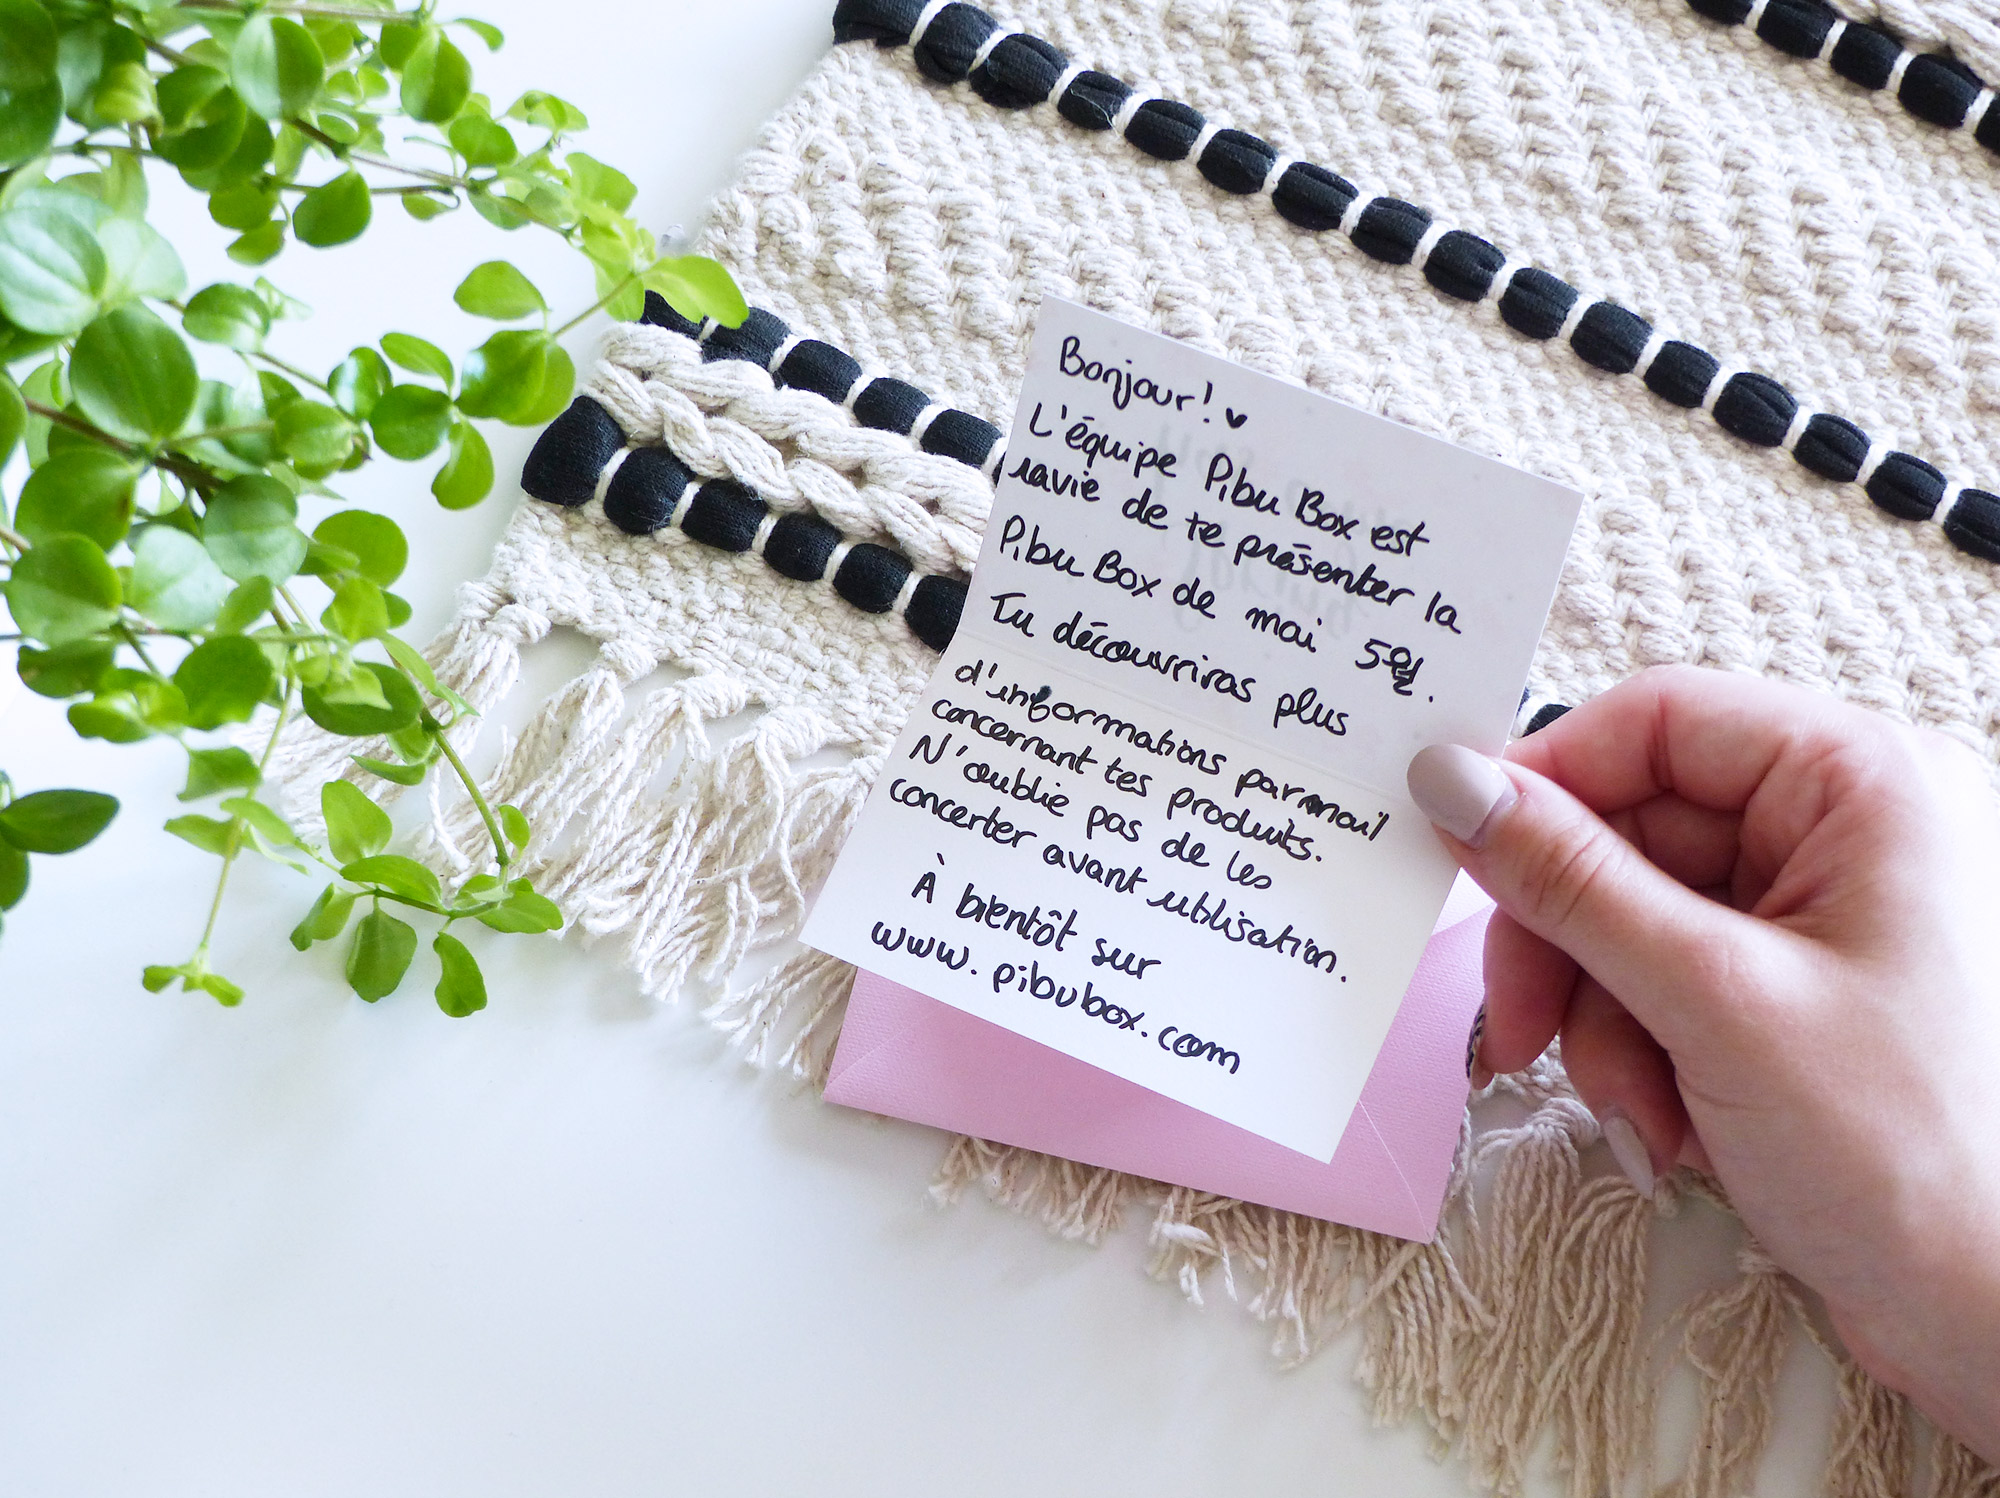 Bonjour! ♥
L'équipe Pibu Box est
ravie de te présenter la
Pibu Box de mai
Tu découvriras plus
d'informations par mail
concernant tes produits.
N'oublie pas de les
concerter avant utilisation.
À bientôt sur
www.pibubox.com